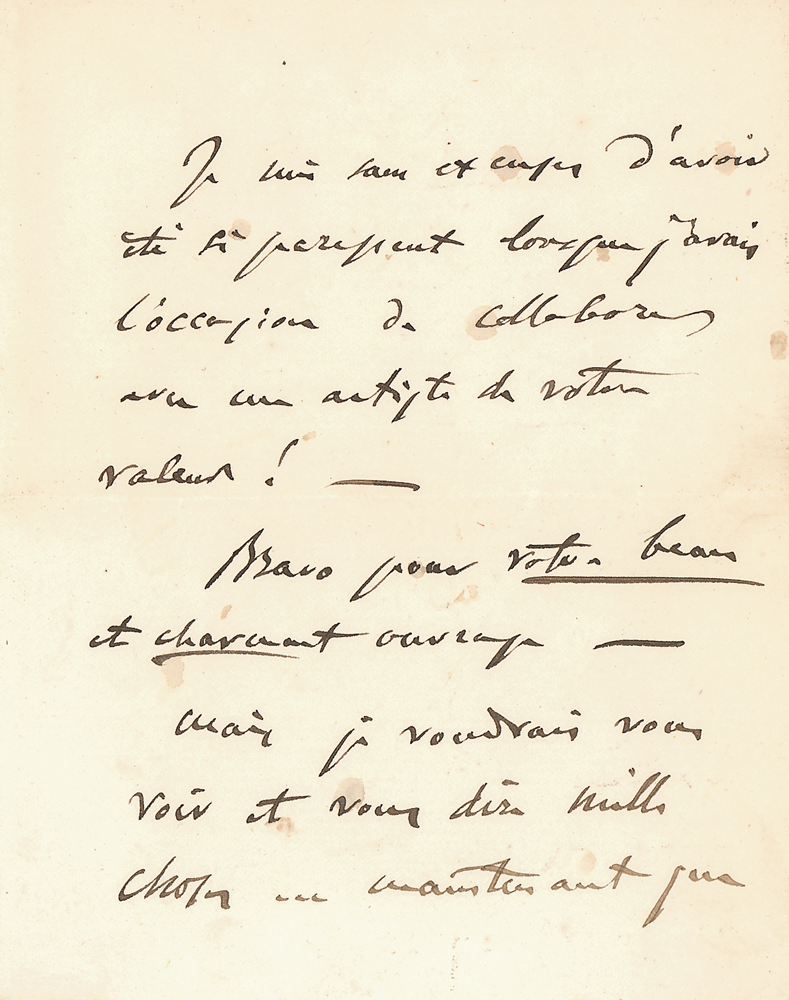 Je suis sans excuses d'avoir
été si paresseux lorsque j'avais
l'occasion de collaborer
avec un artiste de votre
valeur ! —
Bravo pour votre beau
et charmant ouvrage —
Mais je voudrais vous
voir et vous dire mille
choses maintenant que